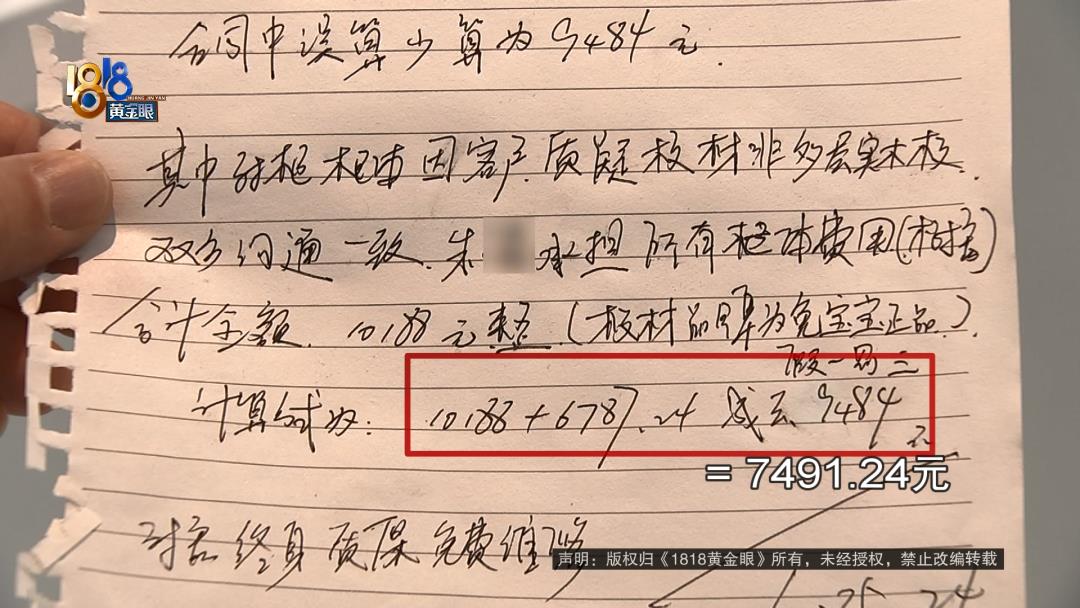 合同中误算少算为9484元.
1818
HUANG JIN YAN
黄金眼
其中衣柜柜体因客户质疑板材非多层实木板.
双方沟通一致.朱 承担所有柜体费用(衣柜)
合计金额.10188元整.(板材品牌为兔宝宝正品).
假一罚三
计算式为:10188+6787.24减去9484元
= 7491.24元
对客终身质保免费维修
声明：版权归《1818黄金眼》所有，未经授权，禁止改编转载